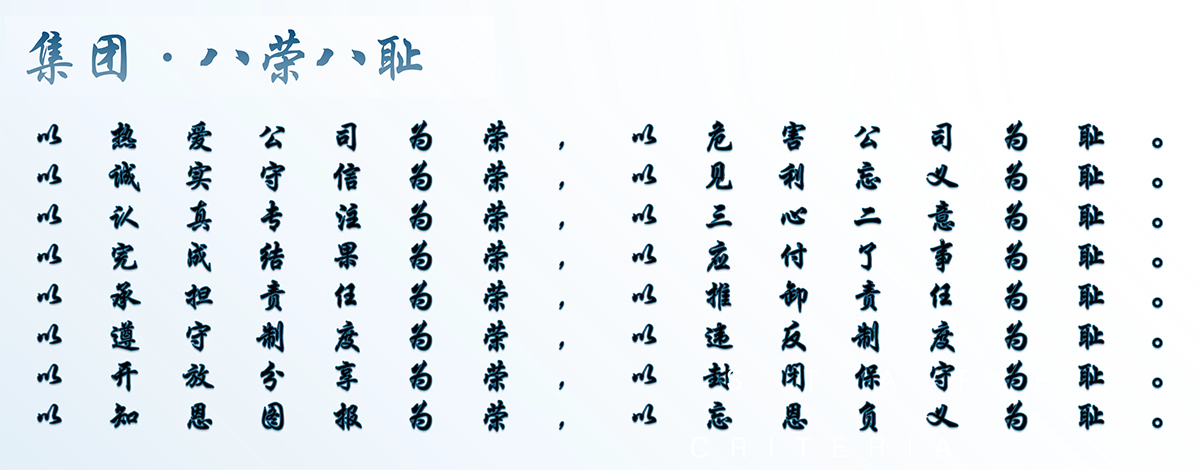 集团·八荣八耻
以热爱公司为荣，以危害公司为耻。
以诚实守信为荣，以见利忘义为耻。
以认真专注为荣，以三心二意为耻。
以完成结果为荣，以应付了事为耻。
以承担责任为荣，以推卸责任为耻。
以遵守制度为荣，以违反制度为耻。
以开放分享为荣，以封闭保守为耻。
以知恩图报为荣，以忘恩负义为耻。
CRITERIA